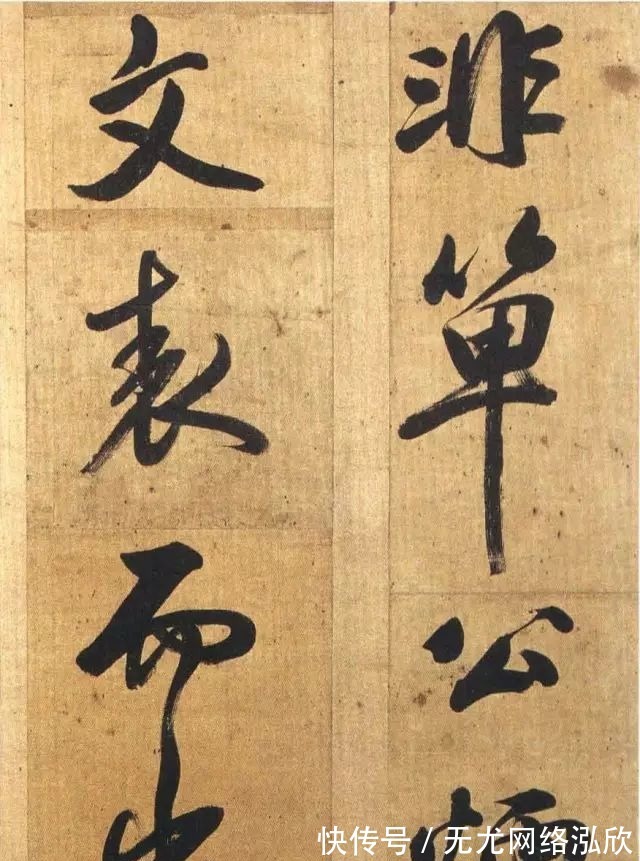 非單公
文表而
快传号/无尤网络泓欣